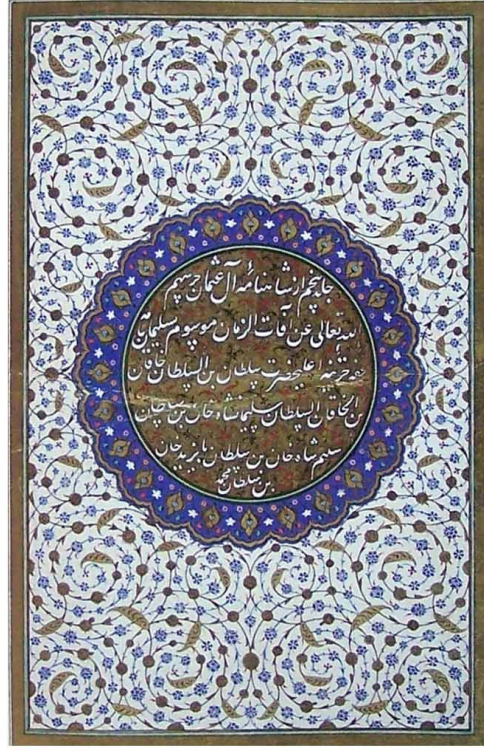 جلد پنجم از شاهنامهٔ آل عثمان حرسهم
الله تعالی عن آفات الزمان موسوم بسلیمان
نامه خزینه اعلیحضرت سلطان بن السلطان خاقان
بن الخاقان السلطان سلیمانشاه خان بن سلطان
سلیم شاه خان بن سلطان بایزید خان
بن سلطان محمد